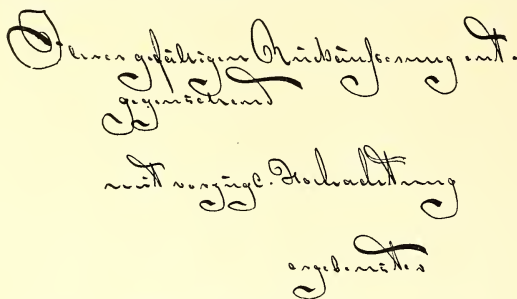 gefälligen Rückäußerung ent-
gegensehend
mit vorzügl. Hochachtung
ergebenster